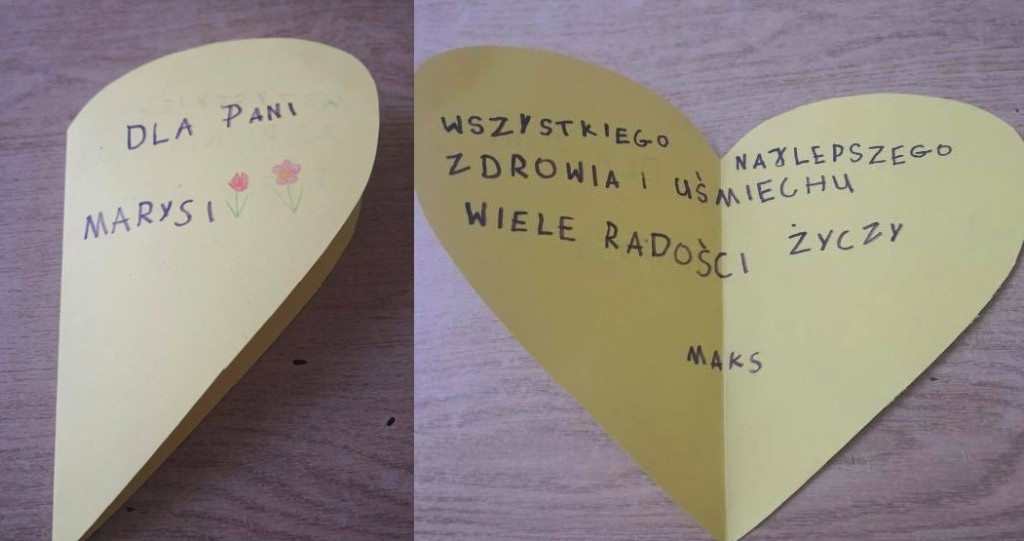 DLA PANI
MARYSI
WSZYSTKIEGO NAJLEPSZEGO
ZDROWIA I UŚMIECHU
WIELE RADOŚCI ŻYCZY
MAKS